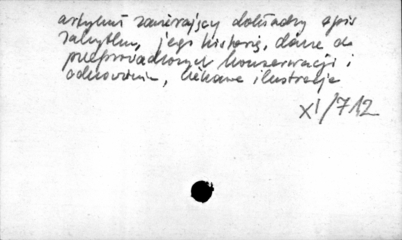 artykuł zawierający dokładny opis
zabytku, jego historię, dane do
przeprowadzonych konserwacji i
odnowienia, ciekawe ilustracje
XI/712